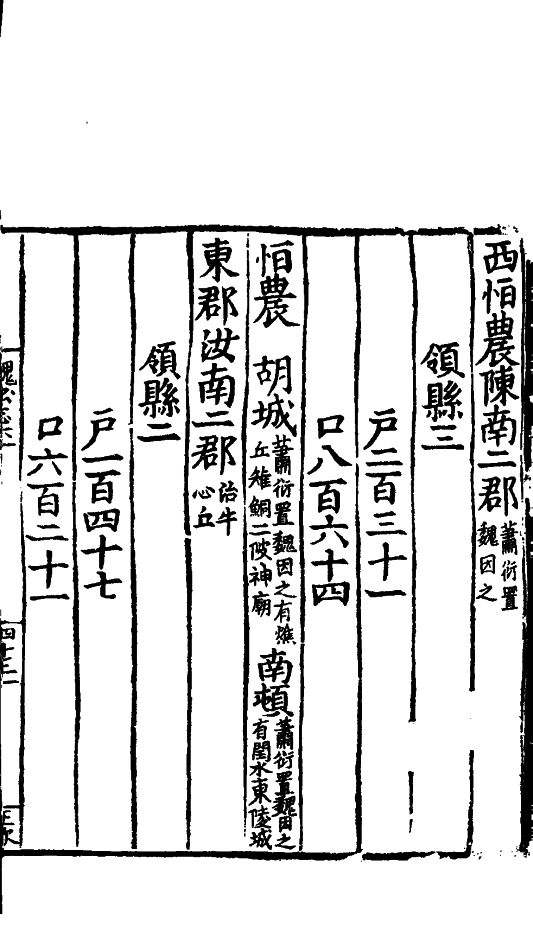 西恒農陳南二郡蕭衍置魏因之
領縣三
戶二百三十一
口八百六十四
恒農　胡城蕭衍置魏因之有焦丘雉鮦二陂神廟南頓蕭衍置魏因之有閏水東陵城
東郡汝南二郡治牛心丘
領縣二
戶一百四十七
口六百二十一